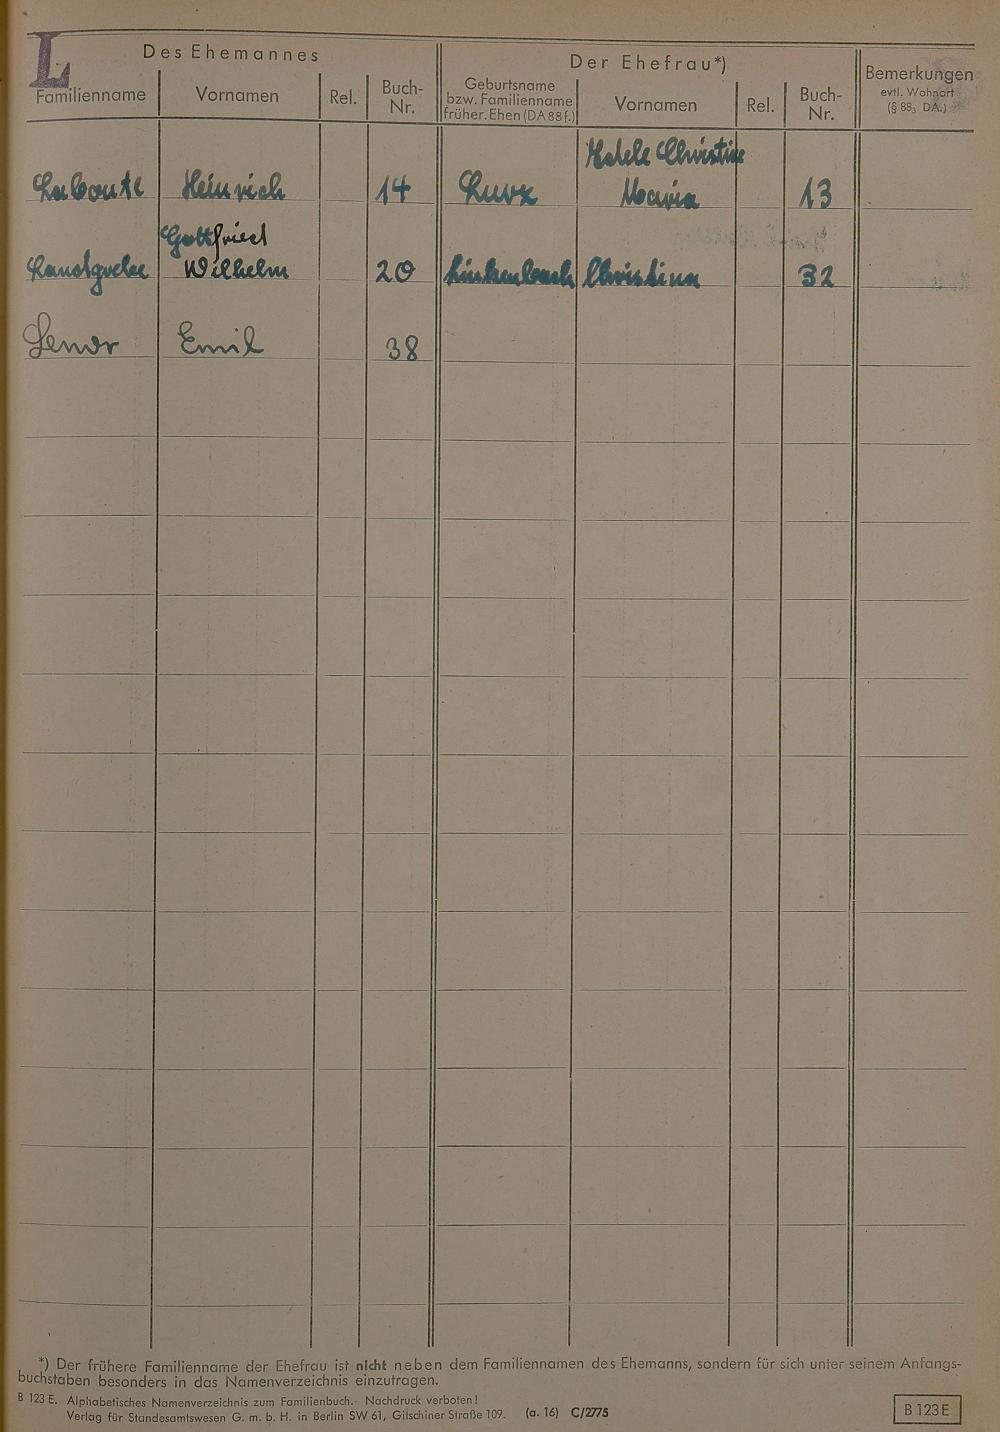 L
Des Ehemannes
Der Ehefrau*)
Familienname
Vornamen
Rel.
Buch-
Nr.
Geburtsname
bzw. Familienname
früher. Ehen (DA 88 f.)
Vornamen
Rel.
Buch-
Nr.
Bemerkungen
evtl. Wohnort
(§ 88₃ DA.)
Christine
Labonte Heinrich 14 Maria 13
Gottfried
Wilhelm 20 Linkenbach Christina 32
Emil 38
*) Der frühere Familienname der Ehefrau ist nicht neben dem Familiennamen des Ehemanns, sondern für sich unter seinem Anfangs-
buchstaben besonders in das Namenverzeichnis einzutragen.
B 123 E. Alphabetisches Namenverzeichnis zum Familienbuch. Nachdruck verboten!
Verlag für Standesamtswesen G. m. b. H. in Berlin SW 61, Gitschiner Straße 109. (a. 16) C/2775
B 123 E